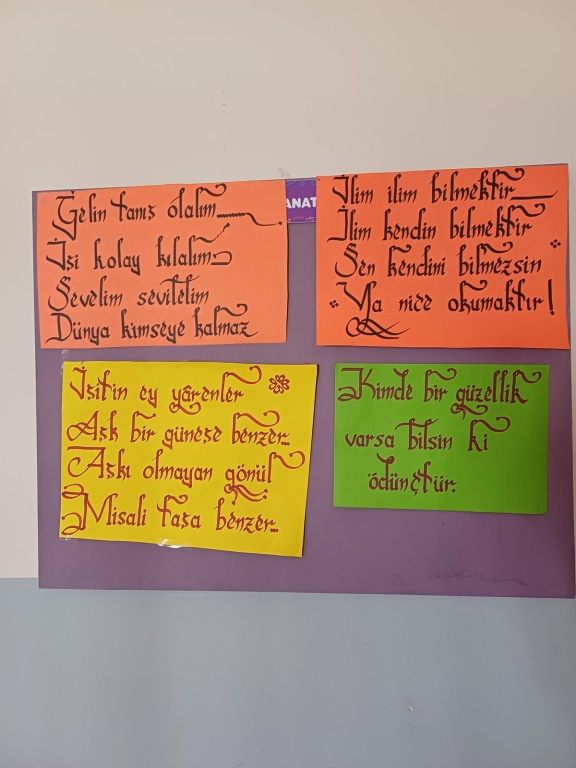 Gelin tanış olalım......
İşi kolay kılalım
Sevelim sevilelim
Dünya kimseye kalmaz
ANAT
İlim ilim bilmektir
İlim kendin bilmektir
Sen kendini bilmezsin
Ya nice okumaktır!
İşitin ey yârenler
Aşk bir güneşe benzer...
Aşkı olmayan gönül
Misali taşa benzer...
Kimde bir güzellik
varsa bilsin ki
ödünçtür.